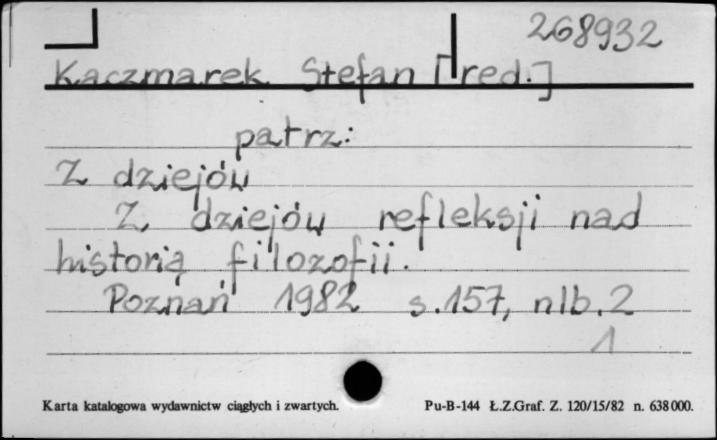 268932
Kaczmarek Stefan [red.]
patrz:
Z dziejów
Z dziejów refleksji nad
historią filozofii.
Poznań 1982 s.157, nlb.2
1
Karta katalogowa wydawnictw ciągłych i zwartych. Pu-B-144 Ł.Z.Graf. Z. 120/15/82 n. 638000.